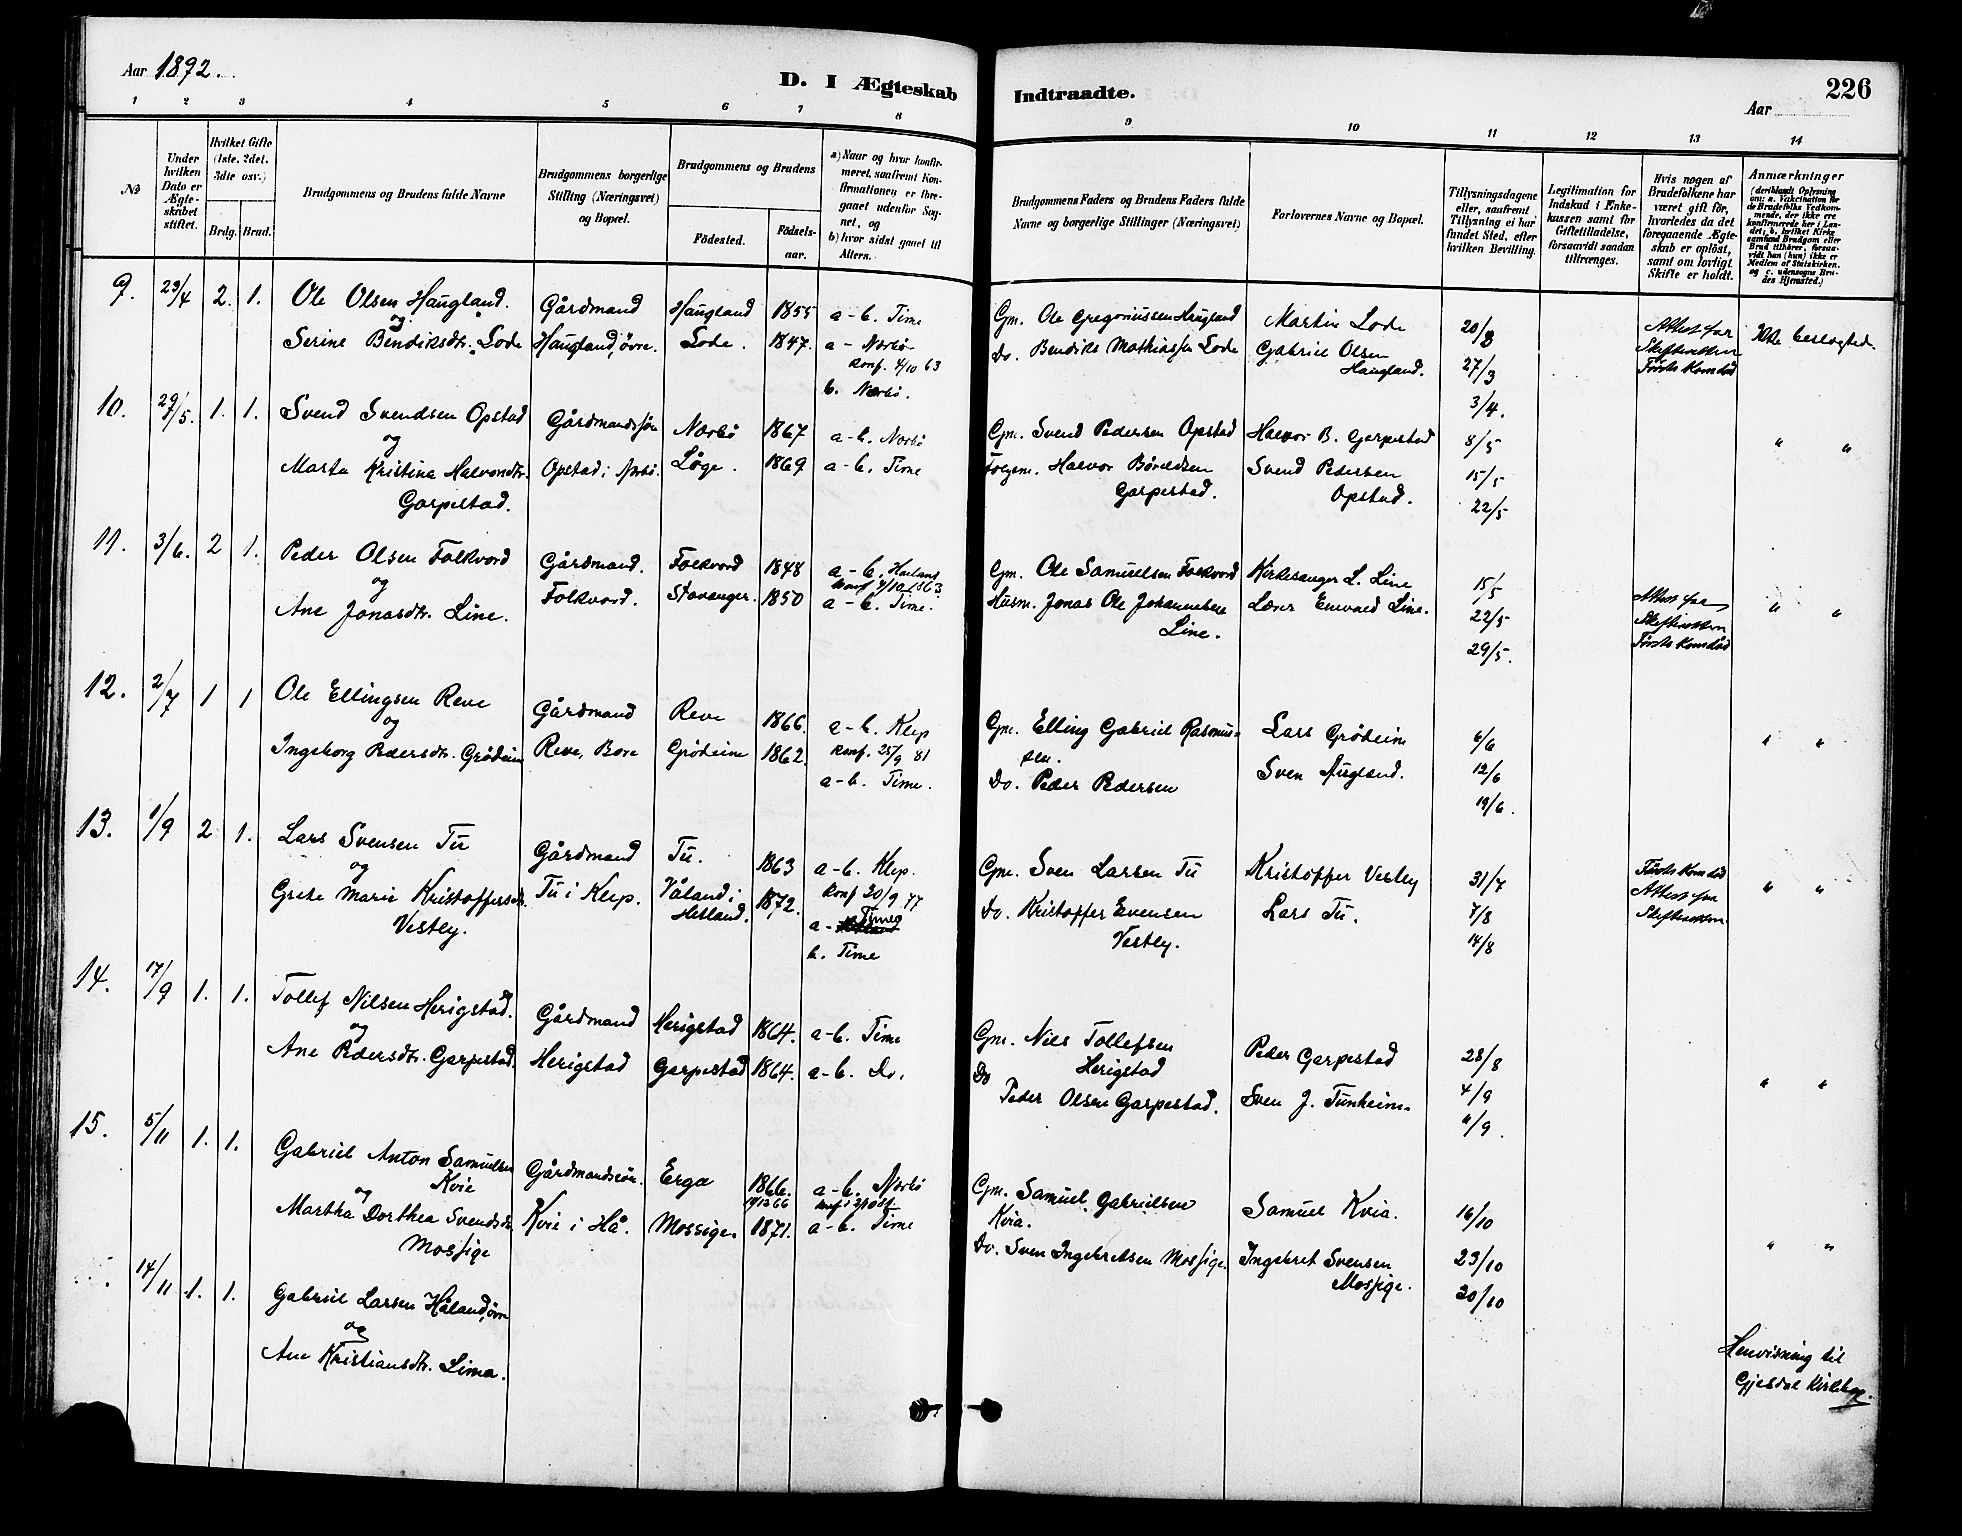 Aar 1892.
D. I Ægteskab Indtraadte.
226
Aar
1 2 3 4 5 6 7 8 9 10 11 12 13 14
No
Under hvilken Dato er Ægteskabet stiftet.
Hvilket Gifte (1ste, 2det, 3die osv.)
Brdg. Brud.
Brudgommens og Brudens fulde Navne
Brudgommens borgerlige Stilling (Næringsvei) og Bopæl.
Brudgommens og Brudens
Födested. Födsels-aar.
a) Naar og hvor konfirmeret, saafremt Konfirmationen er foregaaet udenfor Sognet, og
b) hvor sidst gaaet til Alters.
Brudgommens Faders og Brudens Faders fulde Navne og borgerlige Stillinger (Næringsvei)
Forlovernes Navne og Bopæl.
Tillysningsdagene eller, saafremt Tillysning ei har fundet Sted, efter hvilken Bevilling.
Legitimation for Indskud i Enkekassen samt for Giftetilladelse, forsaavidt saadan tiltrænges.
Hvis nogen af Brudefolkene har været gift för, hvorledes da det foregaaende Ægteskab er oplöst, samt om lovligt Skifte er holdt.
Anmærkninger
(deriblandt Oplysning om: a. Vakcination for de Brudefolks Vedkommende, der ikke ere konfirmerede her i Landet; b. hvilket Kirkesamfund Brudgom eller Brud tilhører, forsaavidt han (hun) ikke er Medlem af Statskirken, og c. udensogns Brudes Hjemsted.)
9. 23/4 2. 1. Ole Olsen Haugland. Gårdmand Haugland 1855 a-b. Time Gm. Ole Gregoriussen Haugland Martin Lode 20/3 Attest fra Ikke beslægted.
og
Serine Bendiksdtr. Lode Haugland, øvre. Lode. 1847. a - Nærbø Do. Bendiks Mathiassen Lode Gabriel Olsen Haugland. 27/3 Skifteretten
konf. 4/10 63 Første Kone død
b. Nærbø. 3/4.
10. 29/5. 1. 1. Svend Svendsen Opstad Gårdmandssøn Nærbø 1867 a-b. Nærbø Gm. Svend Pedersen Opstad Halvor B. Garpestad 8/5 " "
og
Marta Kristina Halvorsdtr. Opstad i Nærbø. Löge. 1869 a-b. Time Halvor Svend Pedersen 15/5
Garpestad. Garpestad. Opstad. 22/5
11. 3/6. 2 1. Peder Olsen Folkvord Gårdmand. Folkvord 1848 a-b. Gm. Ole Samuelsen Folkvord Kirkesanger L. Line 15/5
og
Ane Jonasdtr. Line. Folkvord. Stavanger. 1850 a-b. Time. Husm. Jonas Ole Johannesen Lærer Line. 22/5 Attest fra " "
Line. 29/5. Skifteretten
Første Kone død
12. 2/7 1 1 Ole Ellingsen Reve Gårdmand Reve 1866. a-b. Klep Gm. Elling Gabriel Rasmus- Lars Grødeim 6/6 " "
og konf. 25/9 81 sen.
Ingeborg Pedersdtr. Grødeim Reve, Bore Grødeim 1862. a-b. Time. Do. Peder Pedersen Sven Augland. 12/6
19/6.
13. 1/9 2 1. Lars Svensen Tu Gårdmand Tu. 1863 a-b. Klep. Gm. Sven Larsen Tu Kristoffer Vestly 31/7 Første Kone død " "
og konf 20/9 77
Grete Marie Kristoffersdtr. Tu i Klep. Våland i 1872. a - Time Do. Kristoffer Evensen Lars Tu. 7/8 Attest fra
Vestly. Hetland. b. Time Vestly. 14/8 Skifteretten
14. 17/9 1. 1. Tollef Nilsen Herigstad. Gårdmand Herigstad 1864. a-b. Time Gm. Nils Tollefsen Peder Garpestad 28/8
og Herigstad
Ane Pedersdtr. Garpestad. Herigstad Garpestad 1864. a-b. Do. Do Peder Olsen Garpestad. Sven J. Tunheim. 4/9 " "
11/9.
15. 5/11 1. 1. Gabriel Anton Samuelsen Gårdmandssøn. Erga 1866. a-b. Nærbø Gm. Samuel Gabrielsen Samuel Kvia. 16/10
Kvie Kvia.
og
Martha Dorthea Svendsdtr. Kvie i Hå. Mossige 1871. a-b. Time Do. Sven Ingebretsen Mossige. Ingebret Svensen 23/10 " "
Mossige Mossige. 30/10
14/11 1. 1. Gabriel Larsen Håland, øvre
og
Ane Kristiansdtr. Lima.
Henvisning til
Gjesdal Kirkebog.